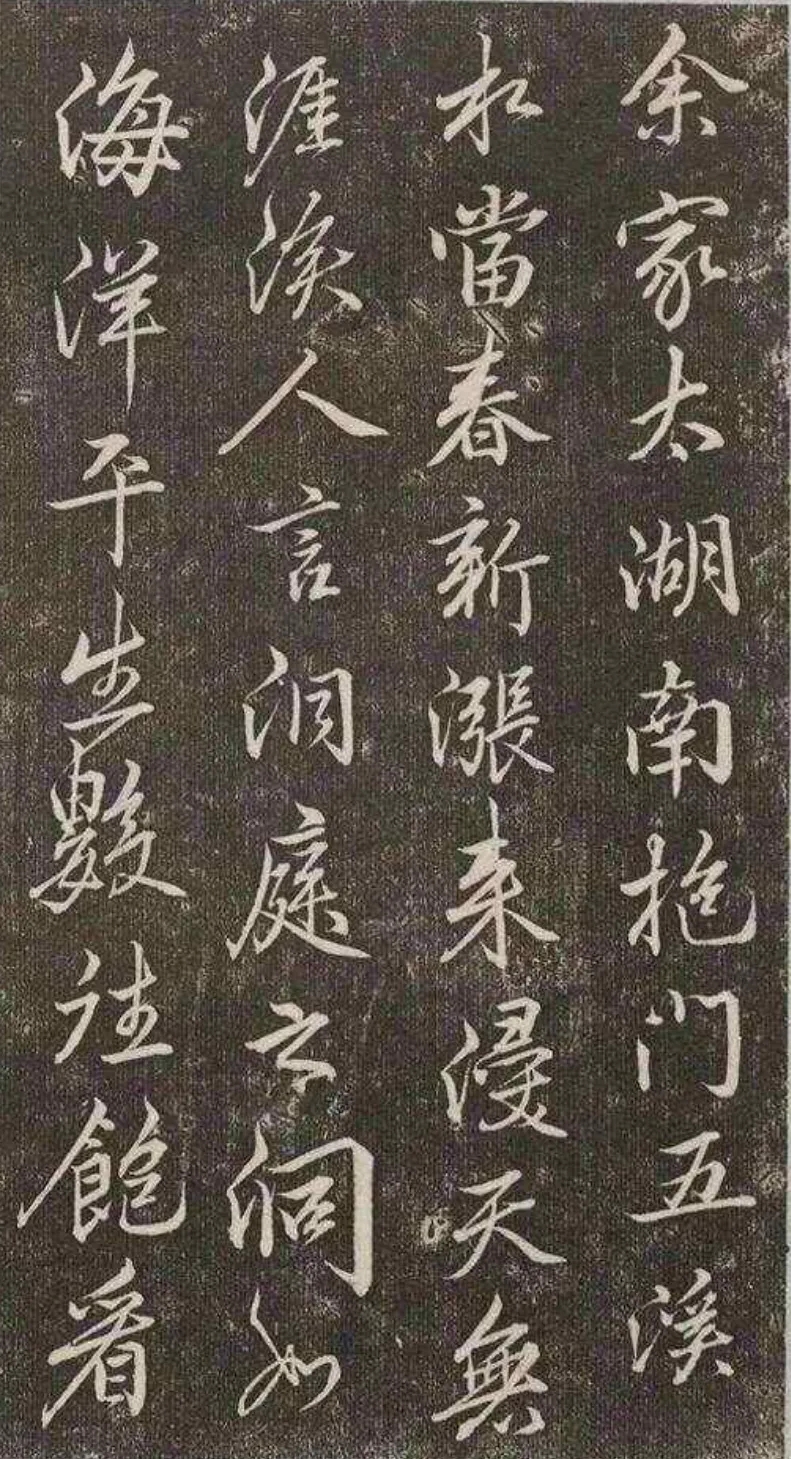 余家太湖南抱門五溪
水當春新漲来浸天無
涯涘人言洞庭之如
海洋平生數往飽看